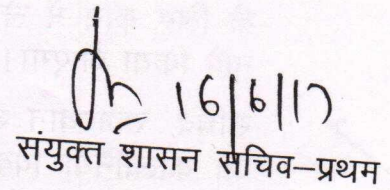 16/6/17
संयुक्त शासन सचिव–प्रथम